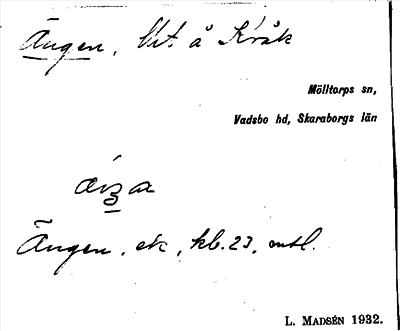 Ängen, lht å Kråk
Mölltorps sn,
Vadsbo hd, Skaraborgs län
Ängen, ek, kb. 23, antl.
L. MADSÉN 1932.